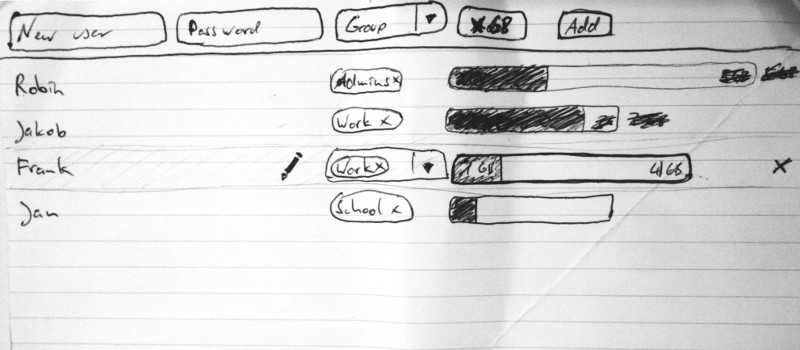 New user Password Group GB Add
Robin Admins x
Jakob Work x
Frank Work x 1 GB 4 GB x
Jan School x